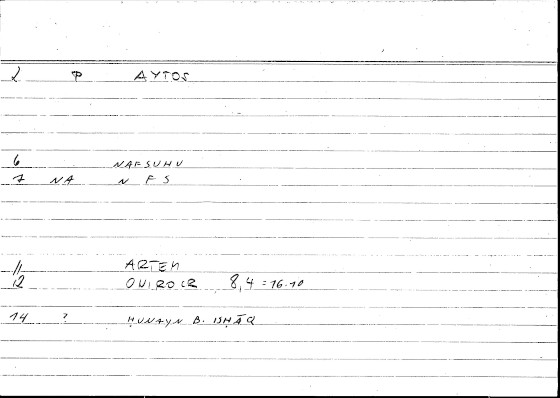 2 P AYTOS
6 NAFSUHU
7 NA N F S
11 ARTEM
12 OUIROCR 8,4 = 16-10
14 ? ḤUNAYN B. ISḤĀQ